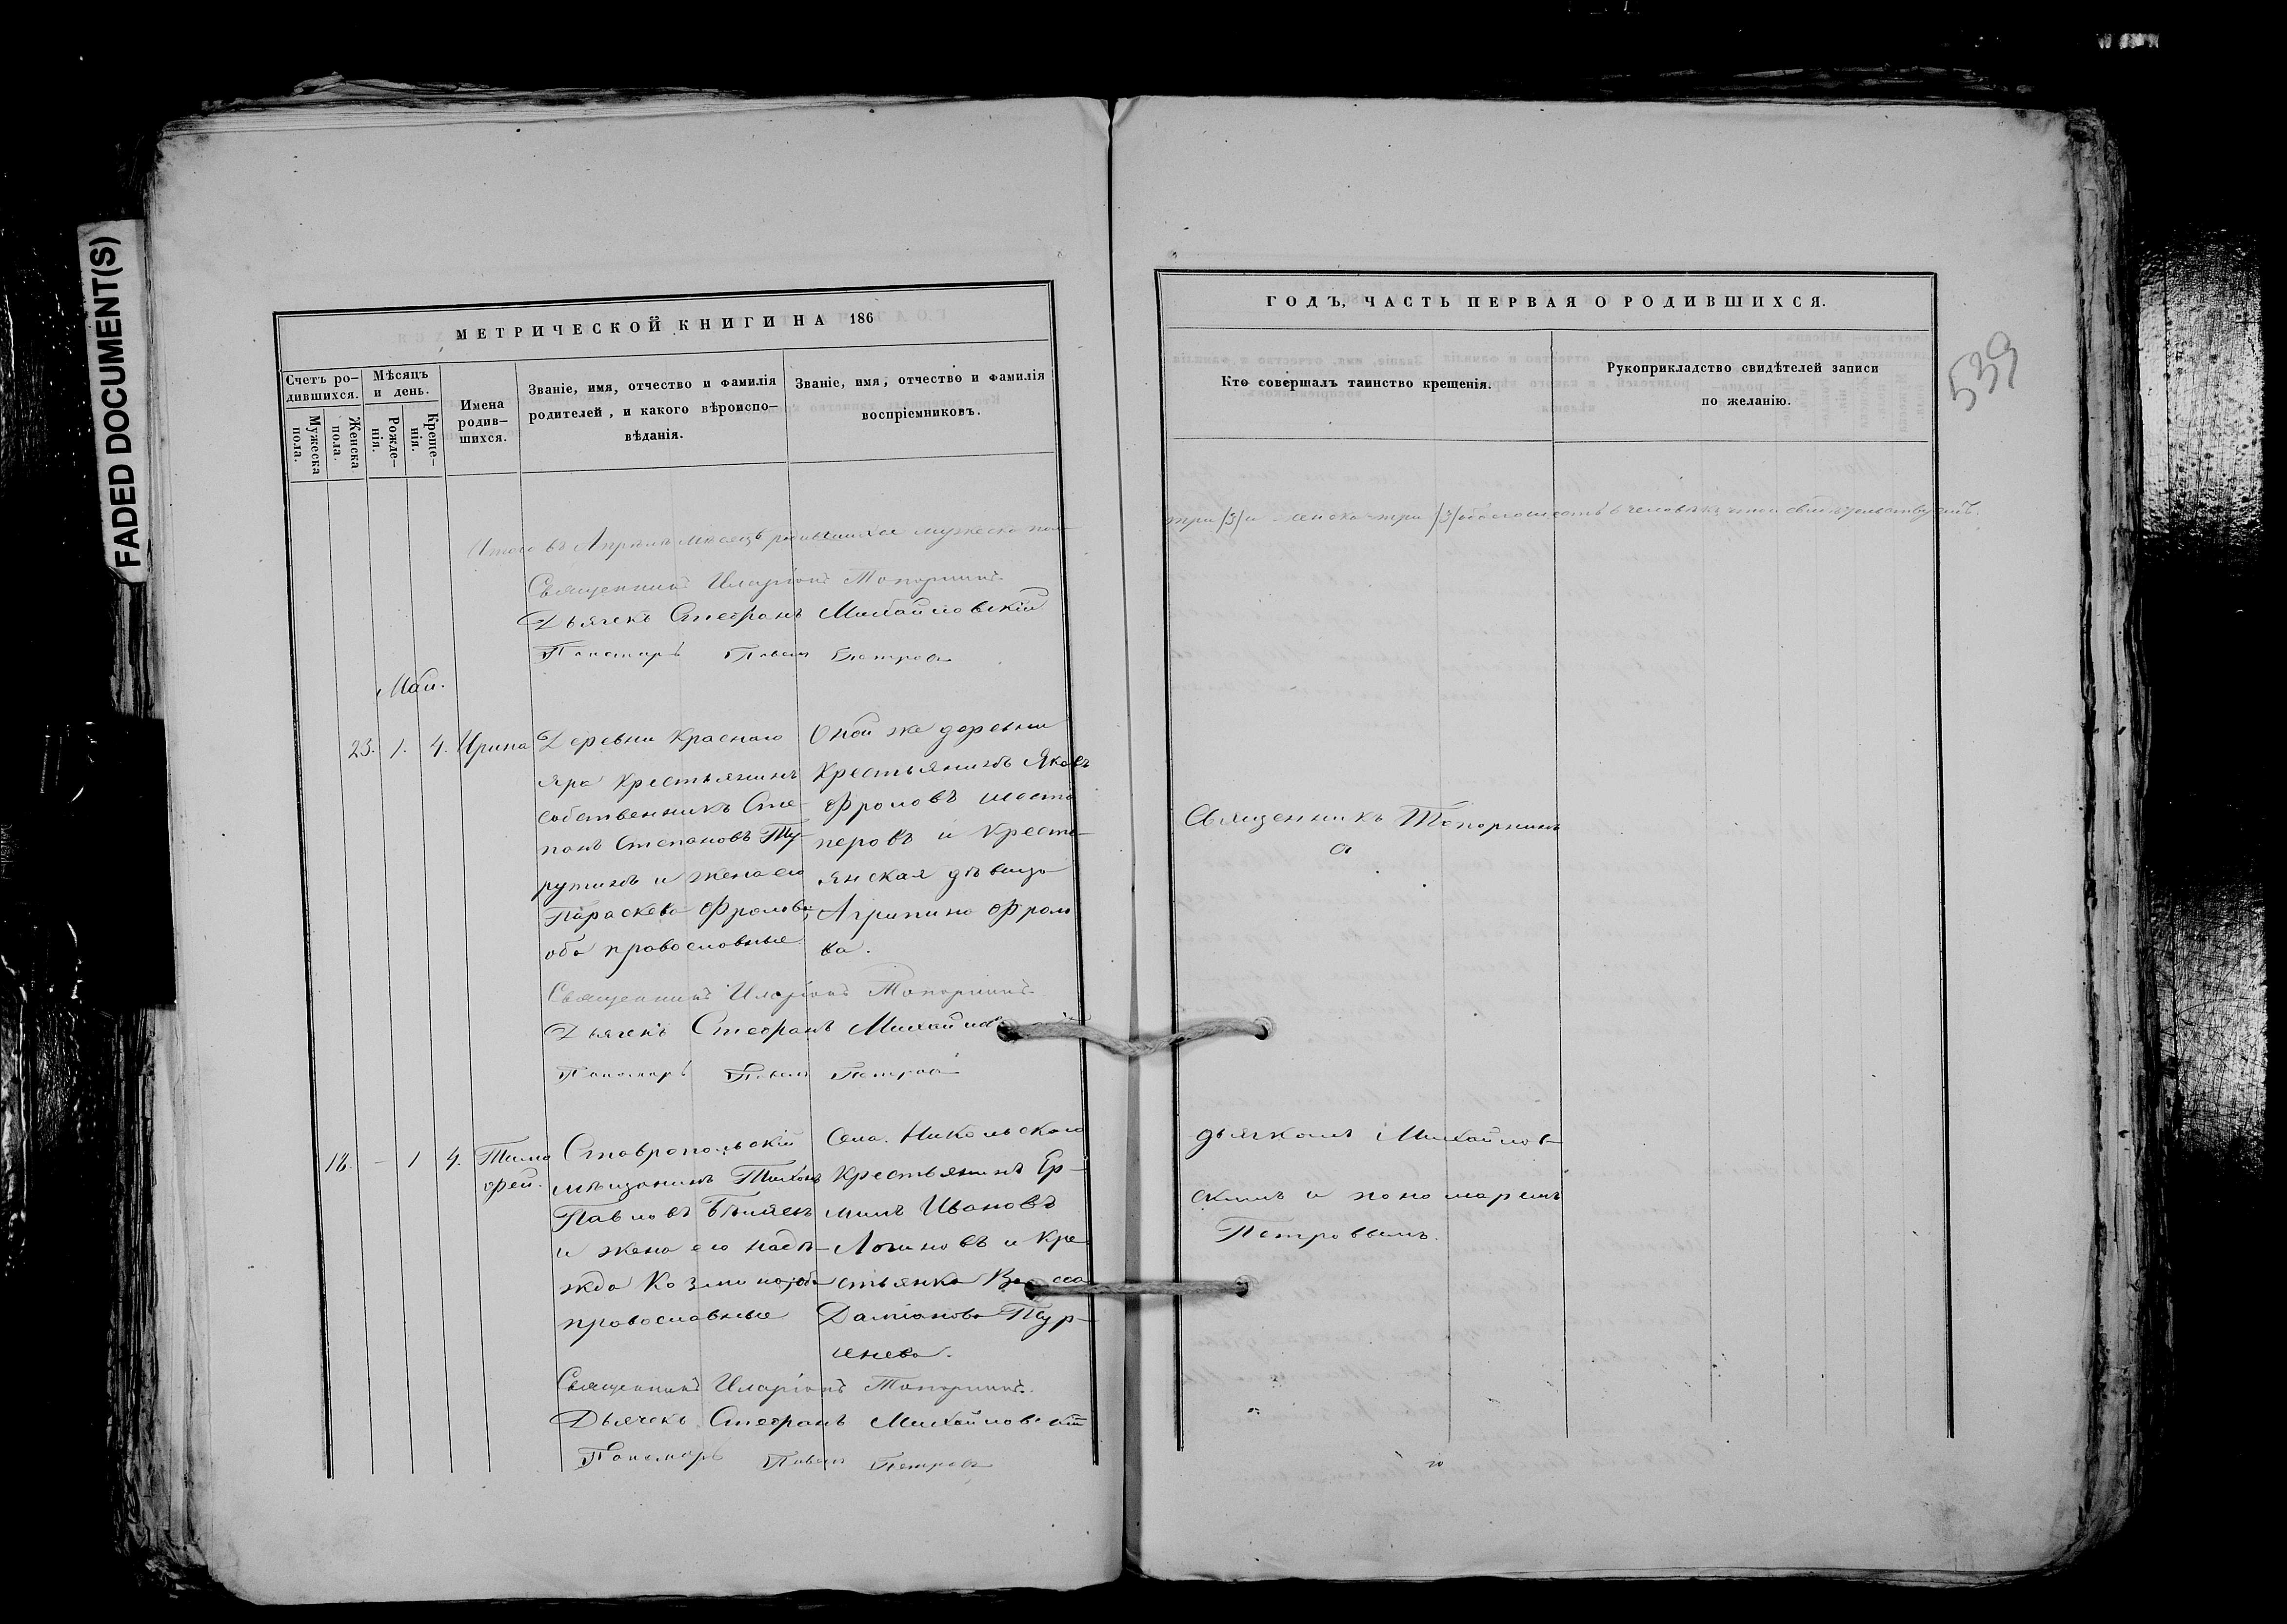 FADED DOCUMENT(S)
МЕТРИЧЕСКОЙ КНИГИ НА 186
Счетъ ро-
дившихся.
Мужеска
пола.
Женска
пола.
Мѣсяцъ
и день.
Рожде-
нія.
Креще-
нія.
Имена
родив-
шихся.
Званіе, имя, отчество и фамилія
родителей, и какого вѣроиспо-
вѣданія.
Званіе, имя, отчество и фамилія
воспріемниковъ.
Итого въ Апрѣлѣ мѣсяцѣ родившихся мужеска пола
Священникъ Иларіонъ Топорнинъ
Дьячекъ Стефанъ Михайловскій
Пономарь Павелъ Петровъ
Май.
23. 1. 4. Ирина
Деревни Краснаго
яра крестьянинъ
собственникъ Сте-
панъ Степановъ
и жена его
Параскева Фролова,
оба православные
Оной же деревни
крестьянинъ Яковъ
Фроловъ Шесто
перовъ и кресть-
янская дѣвица
Агрипина Фроло
ва.
Священникъ Иларіонъ Топорнинъ
Дьячекъ Стефанъ Михайлов
Пономарь Павелъ Петровъ
18. - 1 4. Тимо
фей.
Ставропольскій
мѣщанинъ Тихонъ
Павловъ
и жена его Надѣ-
жда Козмина, оба
православные
Села Никольскаго
крестьянинъ Ер-
милъ Ивановъ
Логиновъ и кре
стьянка
Даміанова Тур-
енева.
Священникъ Иларіонъ Топорнинъ
Дьячекъ Стефанъ Михайловскій
Пономарь Павелъ Петровъ
ГОДЪ, ЧАСТЬ ПЕРВАЯ О РОДИВШИХСЯ.
Кто совершалъ таинство крещенія.
Рукоприкладство свидѣтелей записи
по желанію.
539
три /3/ и женска три /3/ обоего шесть 6 человѣкъ въ томъ свидѣтельствуемъ.
Священникъ Топорнинъ
а
дьячкомъ Михайлов-
скимъ и пономаремъ
Петровымъ.